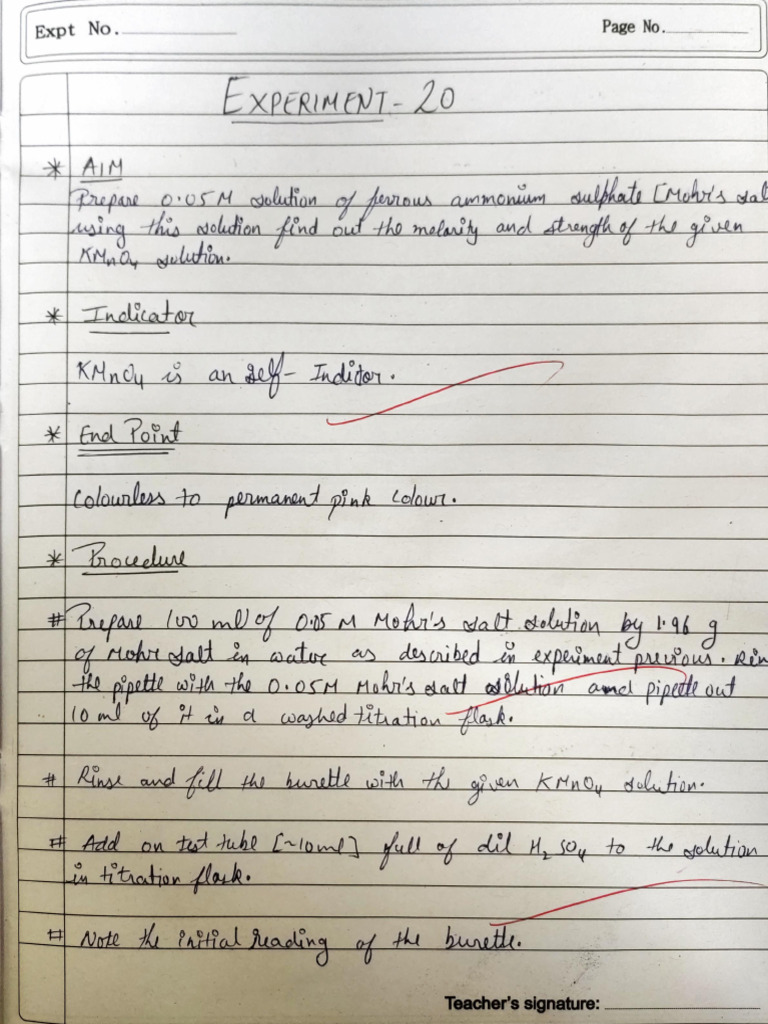 Expt No.
Page No.
EXPERIMENT - 20
* AIM
Prepare 0.05 M solution of ferrous ammonium sulphate [Mohr's salt
using this solution find out the molarity and strength of the given
KMnO4 solution.
* Indicator
KMnO4 is an self- Inditor.
* End Point
Colourless to permanent pink colour.
* Procedure
# Prepare 100 ml of 0.05 M Mohr's salt solution by 1.96 g
of Mohr salt in water as described in experiment previous. Rin
the pipette with the 0.05M Mohr's salt solution and pipette out
10 ml of it in a washed titration flask.
# Rinse and fill the burette with the given KMnO4 solution.
# Add on test tube [~10ml] full of dil H2SO4 to the solution
in titration flask.
# Note the initial reading of the burette.
Teacher's signature: